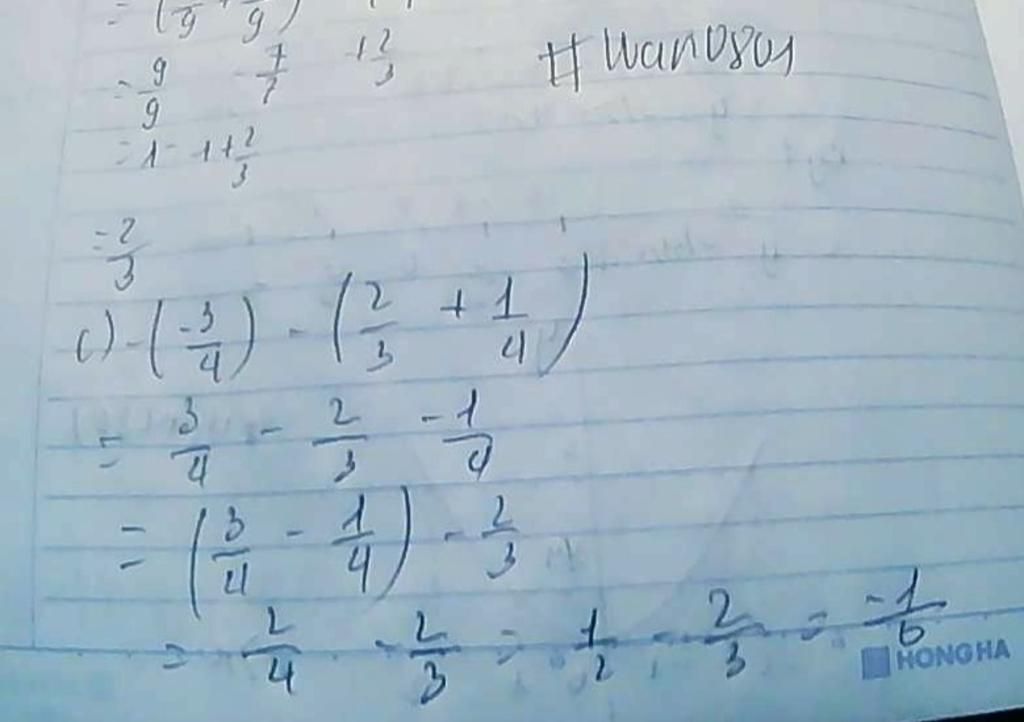 = (/9 + /9)
= 9/9 - 7/7 + 2/3
#wan0801
= 1 - 1 + 2/3
= 2/3
c) - (-3/4) - (2/3 + 1/4)
= 3/4 - 2/3 - 1/4
= (3/4 - 1/4) - 2/3
= 2/4 - 2/3 = 1/2 - 2/3 = -1/6
HONG HA